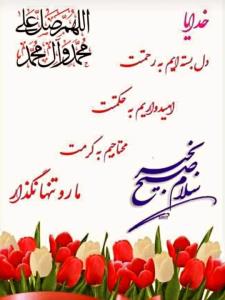 خدایا
اللهم صل علی
محمد وآل محمد
دل بسته ایم به رحمتت
امیدواریم به حکمتت
محتاجیم به کرمت
ما رو تنها نگذار
سلام صبح بخیر